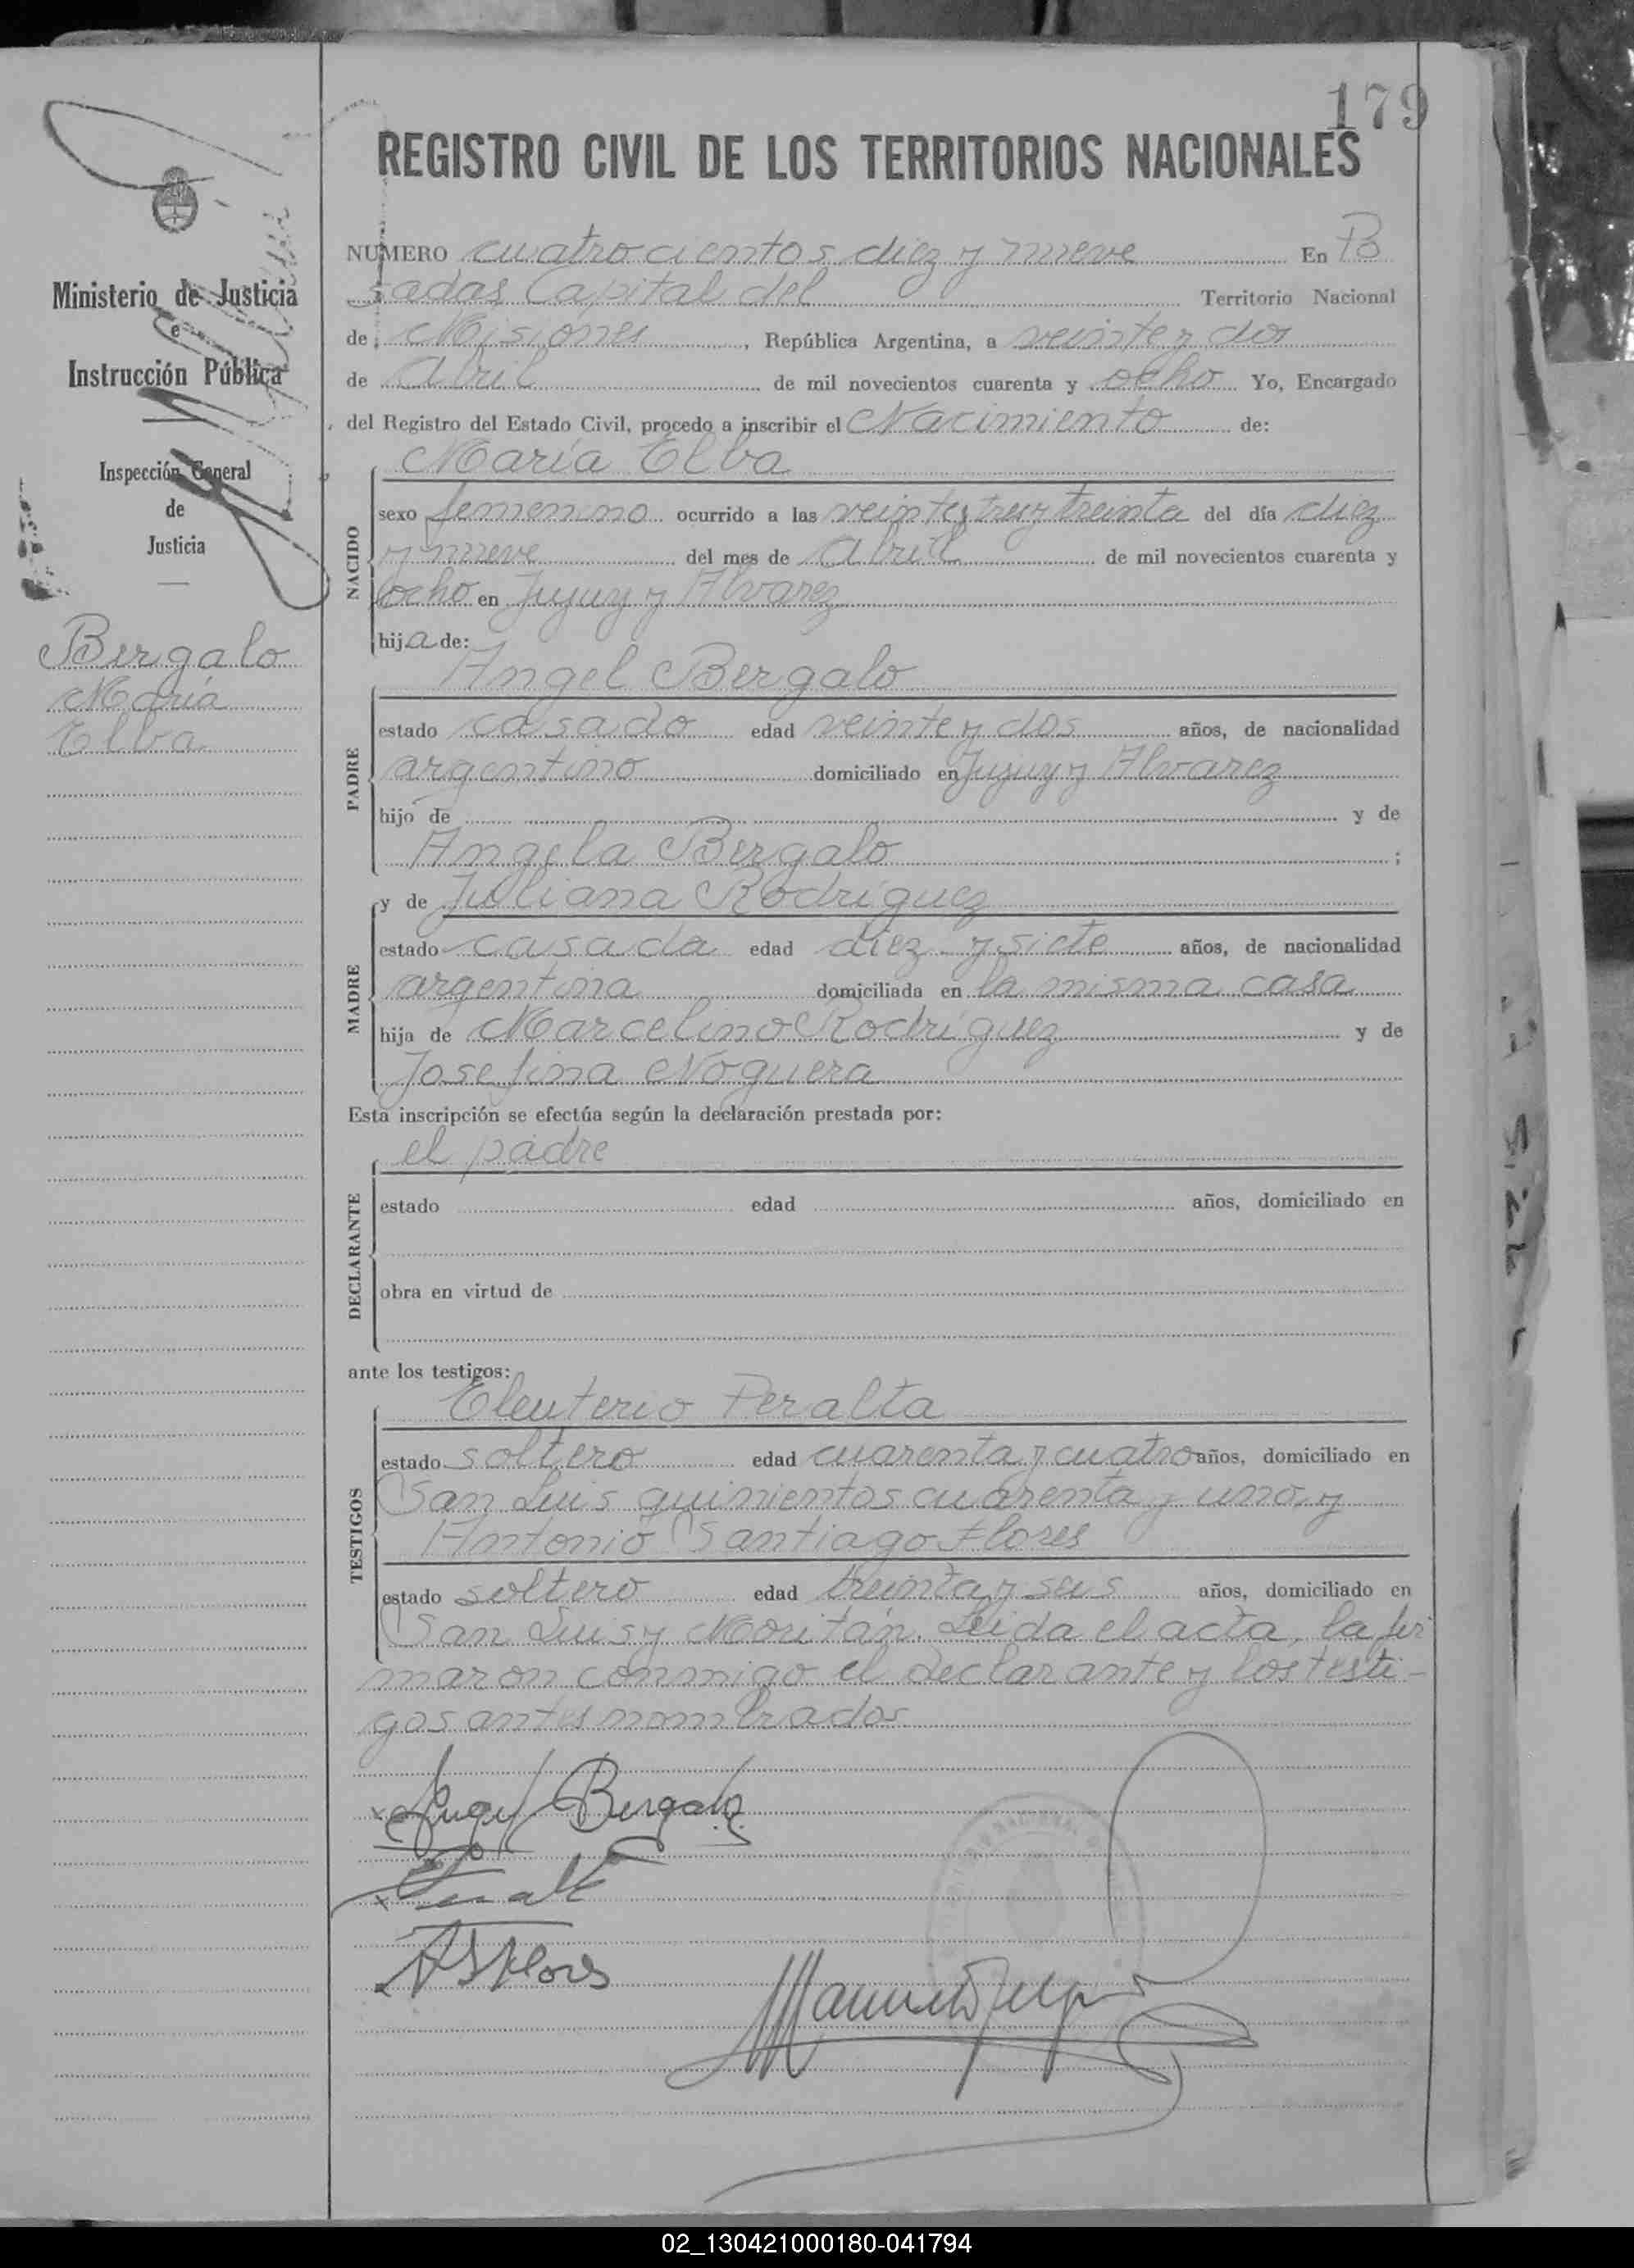 179
REGISTRO CIVIL DE LOS TERRITORIOS NACIONALES
Ministerio de Justicia
e
Instrucción Pública
Inspección General
de
Justicia
Bergalo
María
Elba
NUMERO cuatrocientos diez y nueve En Po
sadas Capital del Territorio Nacional
de Misiones, República Argentina, a veinte y dos
de Abril de mil novecientos cuarenta y ocho Yo, Encargado
del Registro del Estado Civil, procedo a inscribir el Nacimiento de:
María Elba
NACIDO
sexo femenino ocurrido a las veinte y tres y treinta del día diez
y nueve del mes de Abril de mil novecientos cuarenta y
ocho en Jujuy y Alvarez
hija de:
Angel Bergalo
PADRE
estado casado edad veinte y dos años, de nacionalidad
argentino domiciliado en Jujuy y Alvarez
hijo de y de
Angela Bergalo ;
y de Juliana Rodriguez
MADRE
estado casada edad diez y siete años, de nacionalidad
argentina domiciliada en la misma casa
hija de Marcelino Rodriguez y de
Josefina Noguera
Esta inscripción se efectúa según la declaración prestada por:
el padre
DECLARANTE
estado edad años, domiciliado en
obra en virtud de
ante los testigos:
Eleuterio Peralta
TESTIGOS
estado soltero edad cuarenta y cuatro años, domiciliado en
San Luis quinientos cuarenta y uno, y
Antonio Santiago Flores
estado soltero edad treinta y seis años, domiciliado en
San Luis y Moritán. Leida el acta, la fir
maron conmigo el declarante y los testi-
gos antes nombrados
Angel Bergalo
ASFlores
02_130421000180-041794